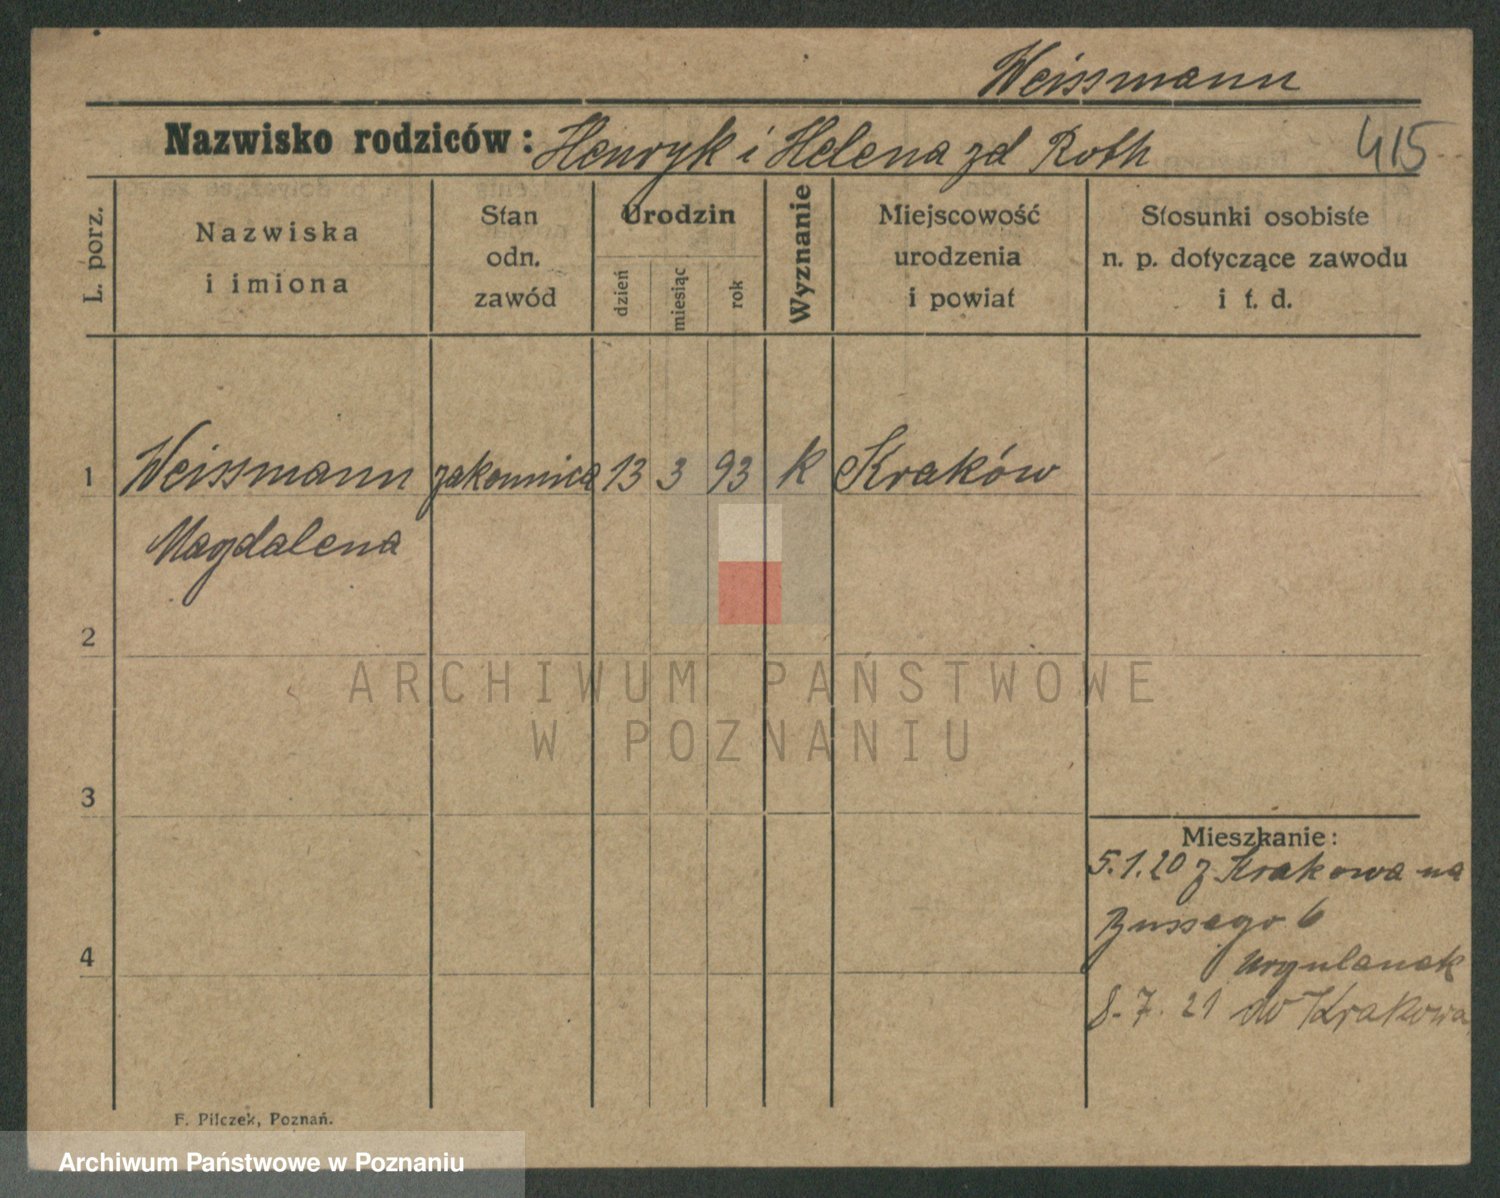 Weissmann
Nazwisko rodziców: Henryk i Helena zd Roth 415
L. porz.
Nazwiska
i imiona
Stan
odn.
zawód
Urodzin
dzień
miesiąc
rok
Wyznanie
Miejscowość
urodzenia
i powiat
Stosunki osobiste
n. p. dotyczące zawodu
i t. d.
1 Weissmann zakonnica 13 3 93 k Kraków
Magdalena
2
3
4
ARCHIWUM PAŃSTWOWE
W POZNANIU
Mieszkanie:
5.1.20 z Krakowa na
6
8.7.21 do Krakowa
F. Pilczek, Poznań.
Archiwum Państwowe w Poznaniu